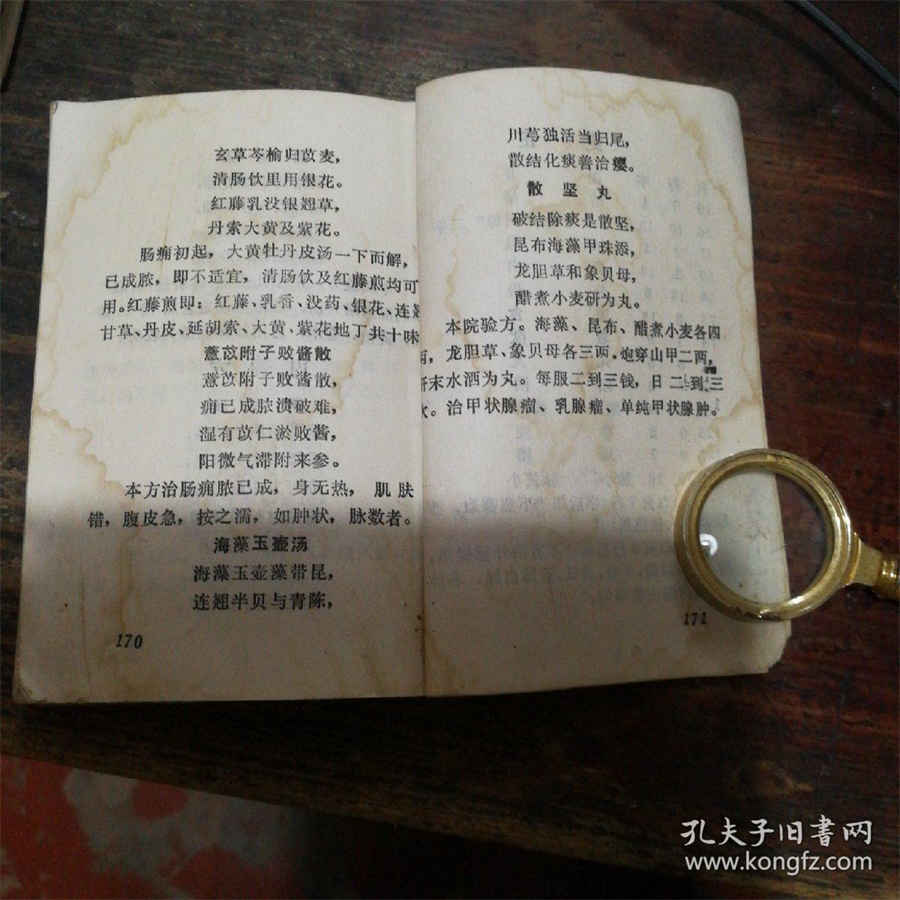 玄草芩榆归苡麦，
清肠饮里用银花。
红藤乳没银翘草，
丹索大黄及紫花。
肠痈初起，大黄牡丹皮汤一下而解，
已成脓，即不适宜，清肠饮及红藤煎均可
用。红藤煎即：红藤、乳香、没药、银花、连翘
甘草、丹皮、延胡索、大黄、紫花地丁共十味
薏苡附子败酱散
薏苡附子败酱散，
痈已成脓溃破难，
湿有苡仁淤败酱，
阳微气滞附来参。
本方治肠痈脓已成，身无热，肌肤
错，腹皮急，按之濡，如肿状，脉数者。
海藻玉壶汤
海藻玉壶藻带昆，
连翘半贝与青陈，
170
川芎独活当归尾，
散结化痰善治瘿。
散坚丸
破结除痰是散坚，
昆布海藻甲珠添，
龙胆草和象贝母，
醋煮小麦研为丸。
本院验方。海藻、昆布、醋煮小麦各四
两，龙胆草、象贝母各三两，炮穿山甲二两，
研末水洒为丸。每服二到三钱，日二到三
次。治甲状腺瘤、乳腺瘤、单纯甲状腺肿。
171
孔夫子旧書网
www.kongfz.com